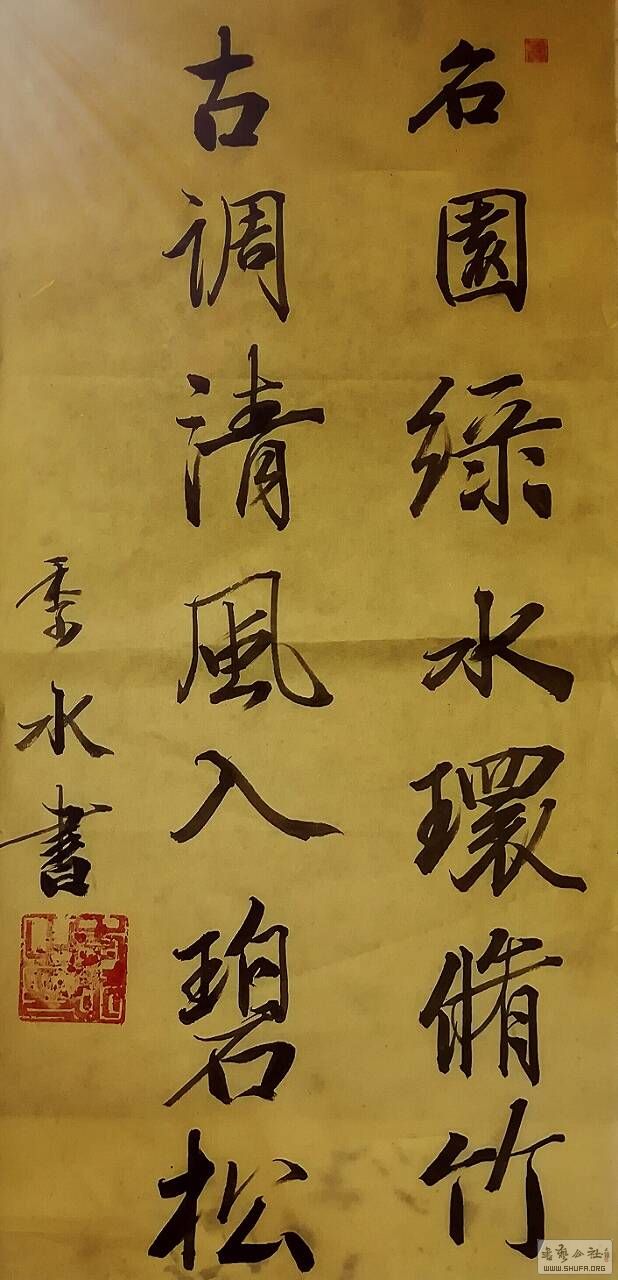 名園綠水環脩竹
古調清風入碧松
水書
WWW.SHUFA.ORG